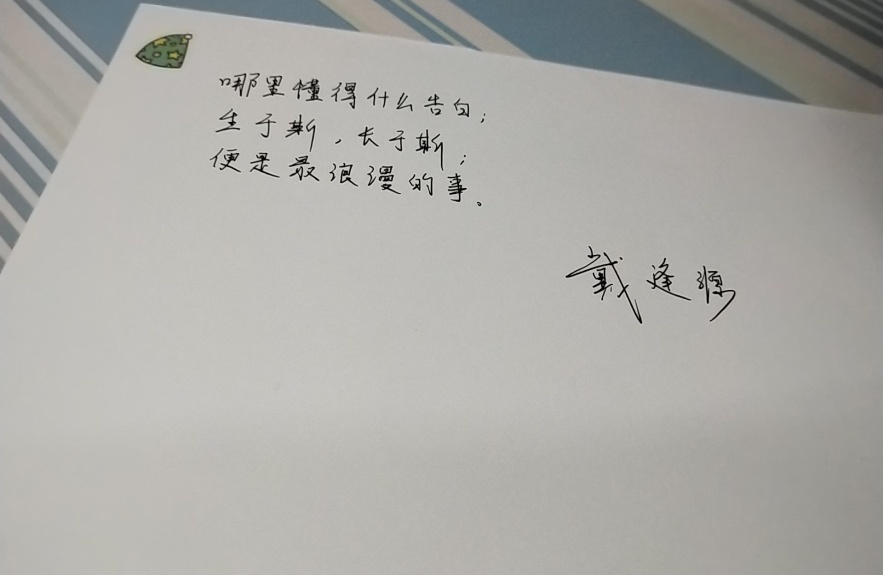 哪里懂得什么告白；
生于斯，长于斯；
便是最浪漫的事。
戴逢源